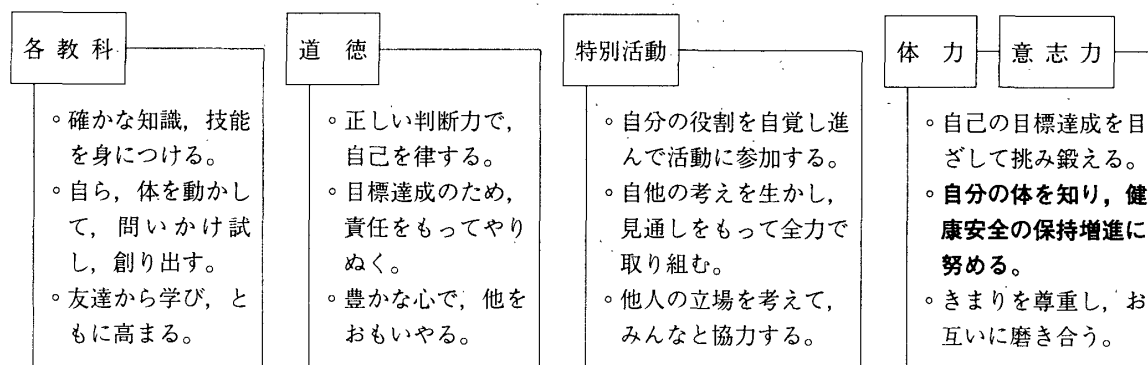 各教科
◦確かな知識，技能
を身につける。
◦自ら，体を動かし
て，問いかけ試
し，創り出す。
◦友達から学び，と
もに高まる。
道徳
◦正しい判断力で，
自己を律する。
◦目標達成のため，
責任をもってやり
ぬく。
◦豊かな心で，他を
おもいやる。
特別活動
◦自分の役割を自覚し進
んで活動に参加する。
◦自他の考えを生かし，
見通しをもって全力で
取り組む。
◦他人の立場を考えて，
みんなと協力する。
体力
意志力
◦自己の目標達成を目
ざして挑み鍛える。
◦自分の体を知り，健
康安全の保持増進に
努める。
◦きまりを尊重し，お
互いに磨き合う。